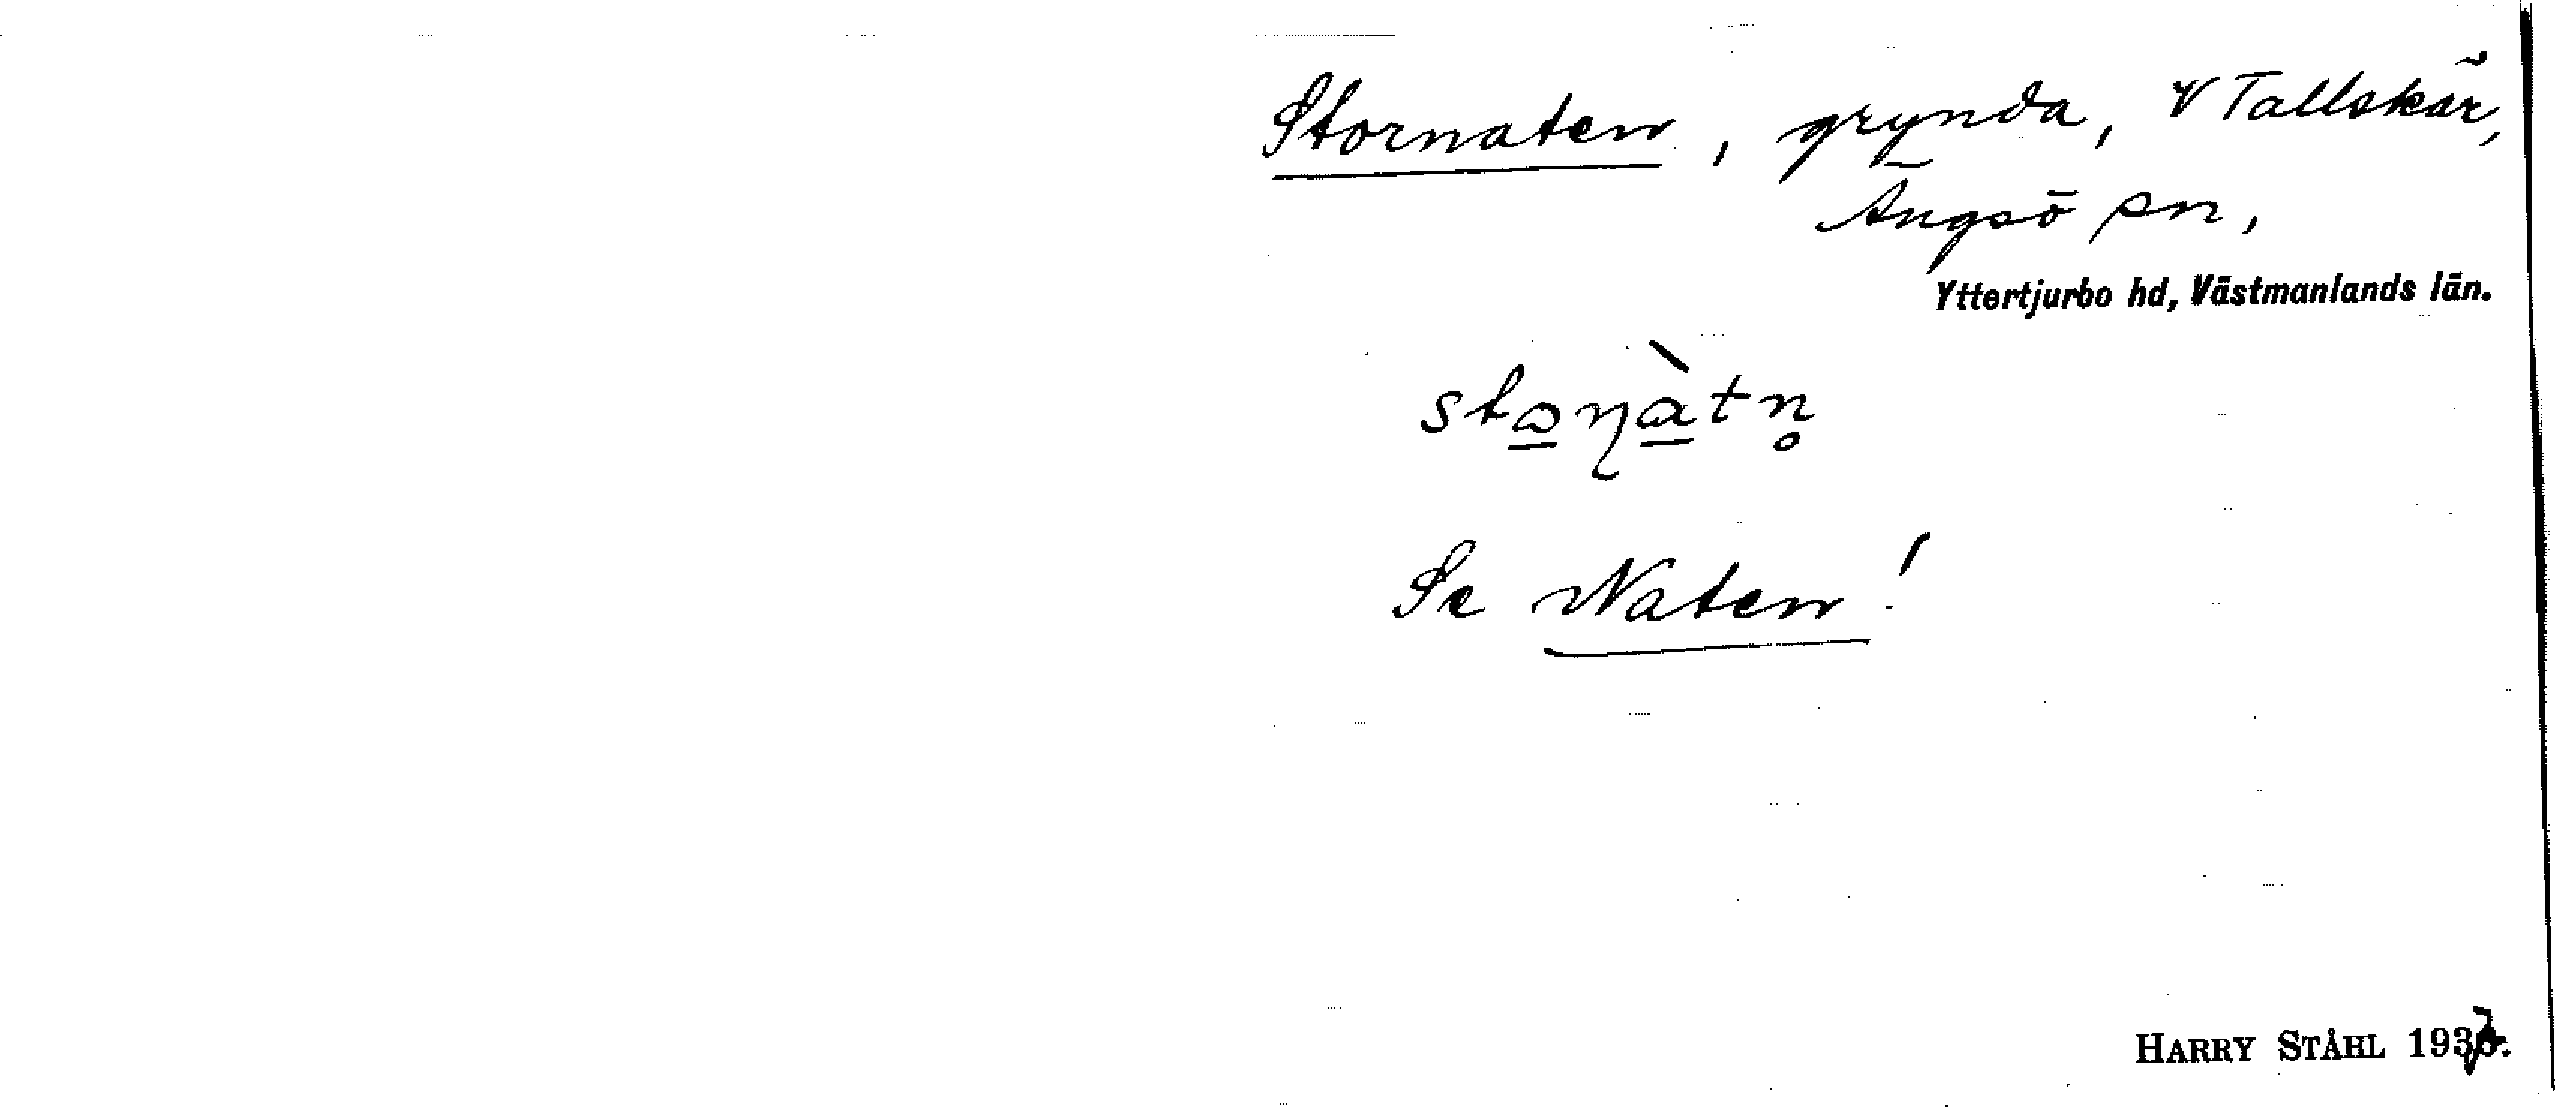 Stornaten, grynda, V Tallskär,
Ängsö sn,
Yttertjurbo hd, Västmanlands län.
stɷɳàtn̥
Se Naten!
HARRY STÅHL 1937.